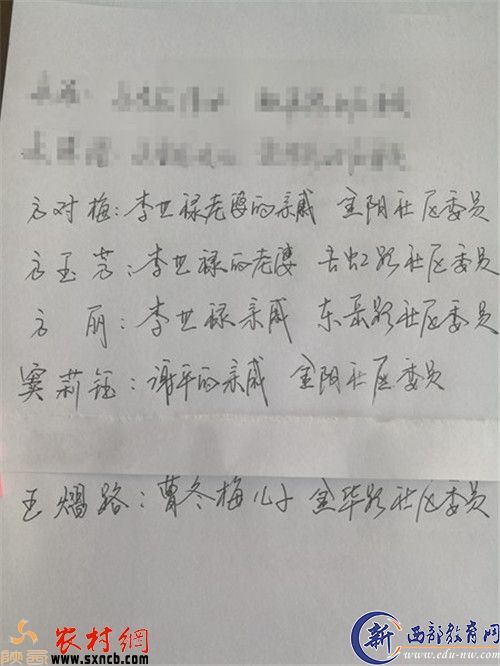 方对梅：李世禄老婆的亲戚 金阳社区委员
方玉芳：李世禄的老婆 吉虹路社区委员
方 丽：李世禄亲戚 东岳路社区委员
窦莉钰：谢平的亲戚 金阳社区委员
王熠路：曹冬梅儿子 金华路社区委员
陕西 农村網
www.sxncb.com
新 西部教育网
www.edu-nw.com